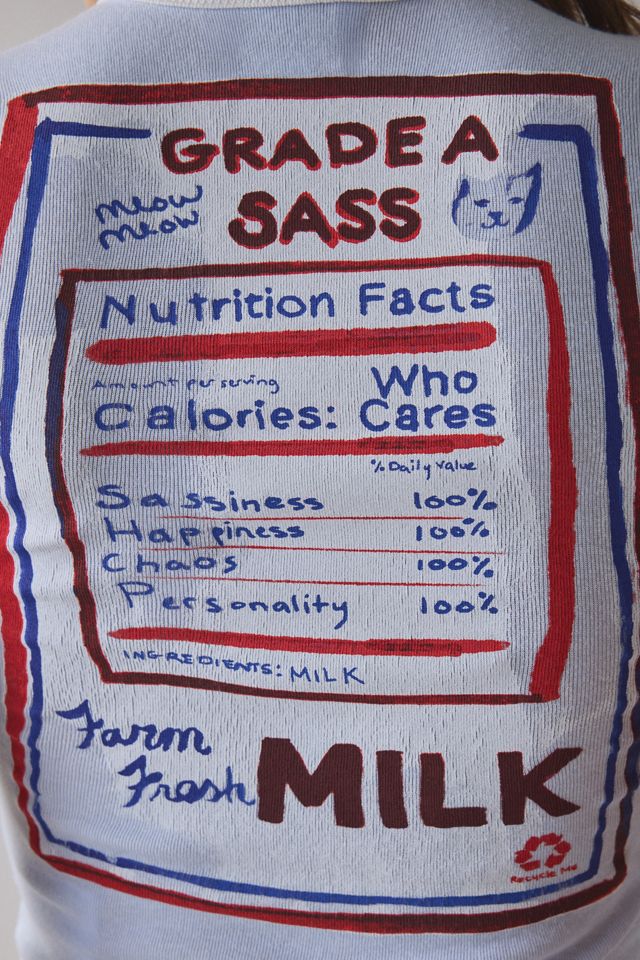 GRADE A
SASS
meow
meow
Nutrition Facts
Amount per serving
Calories: Who Cares
% Daily Value
Sassiness 100%
Happiness 100%
Chaos 100%
Personality 100%
INGREDIENTS: MILK
Farm
Fresh
MILK
RECYCLE ME